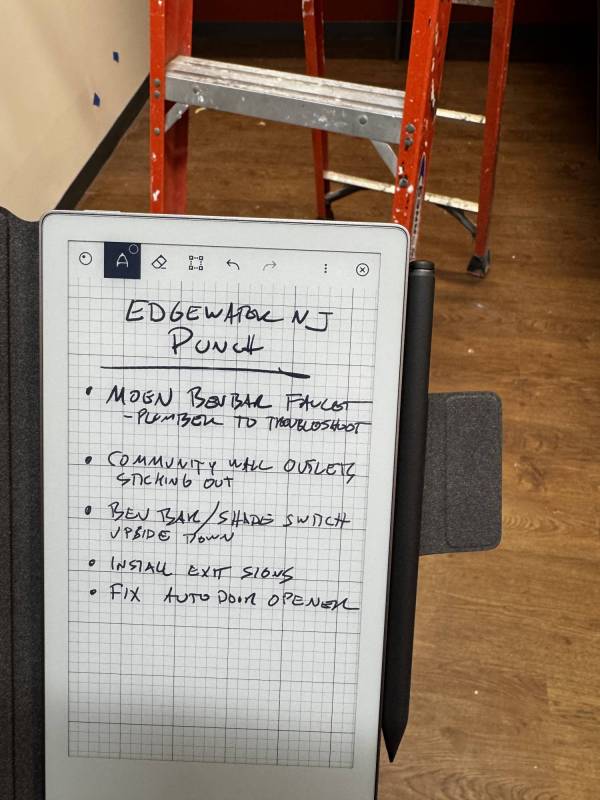 EDGEWATER NJ
PUNCH
• MOEN BEVBAR FAUCET
- PLUMBER TO TROUBLESHOOT
• COMMUNITY WALL OUTLETS
STICKING OUT
• BEV BAR/SHADE SWITCH
UPSIDE DOWN
• INSTALL EXIT SIGNS
• FIX AUTO DOOR OPENER